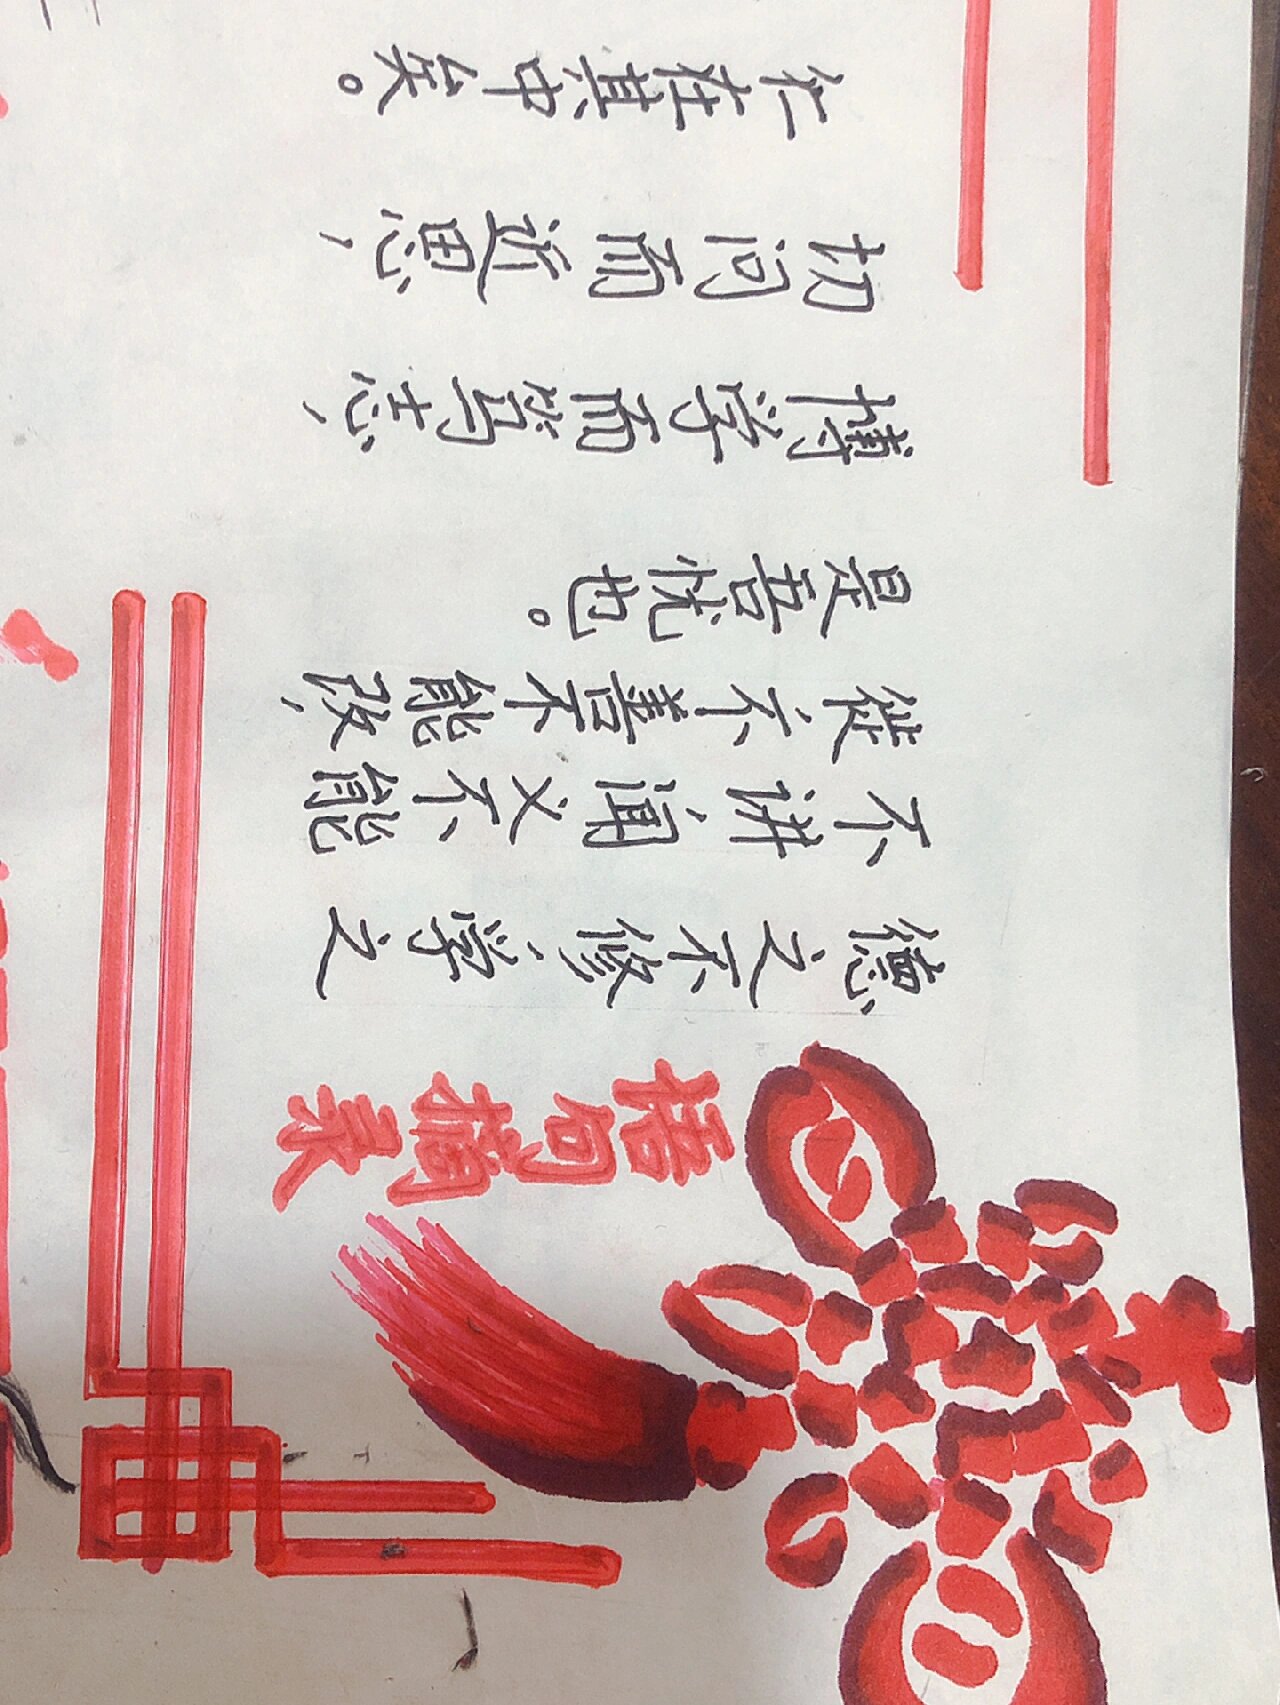 句摘录
德之不修，学之
不讲，闻义不能
徙，不善不能改，
是吾忧也。
博学而笃志，
切问而近思，
仁在其中矣。